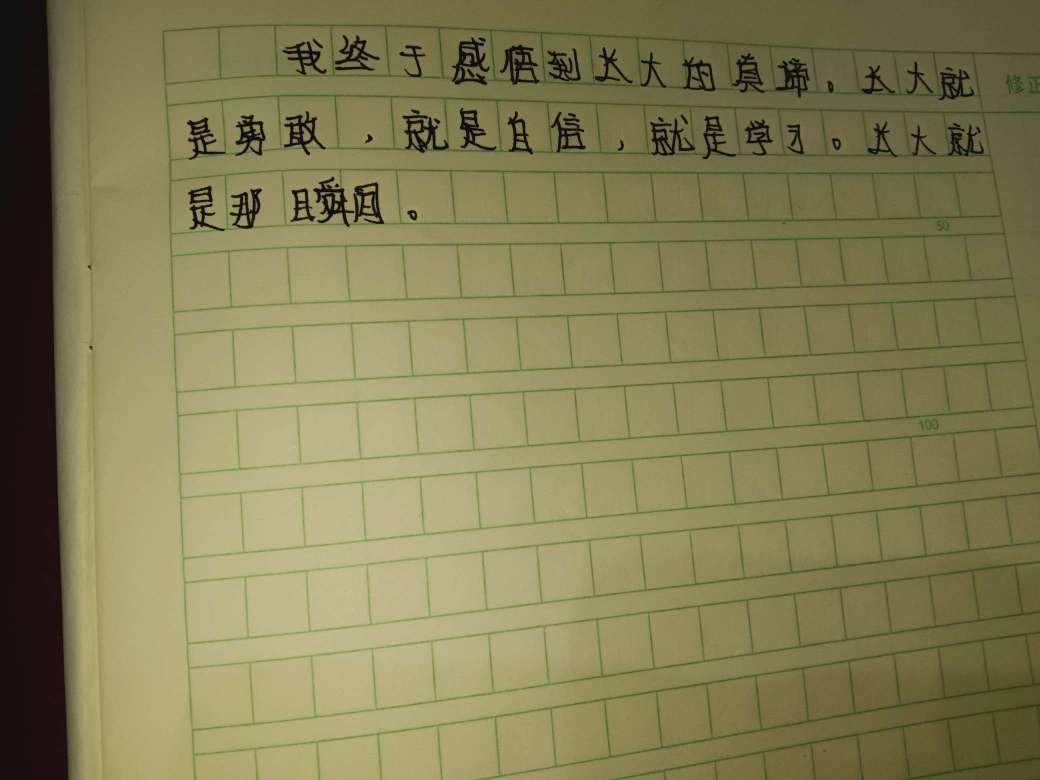 我终于感悟到长大的真蒂。长大就
是勇敢，就是自信，就是学习。长大就
是那瞬间。
修正
50
100